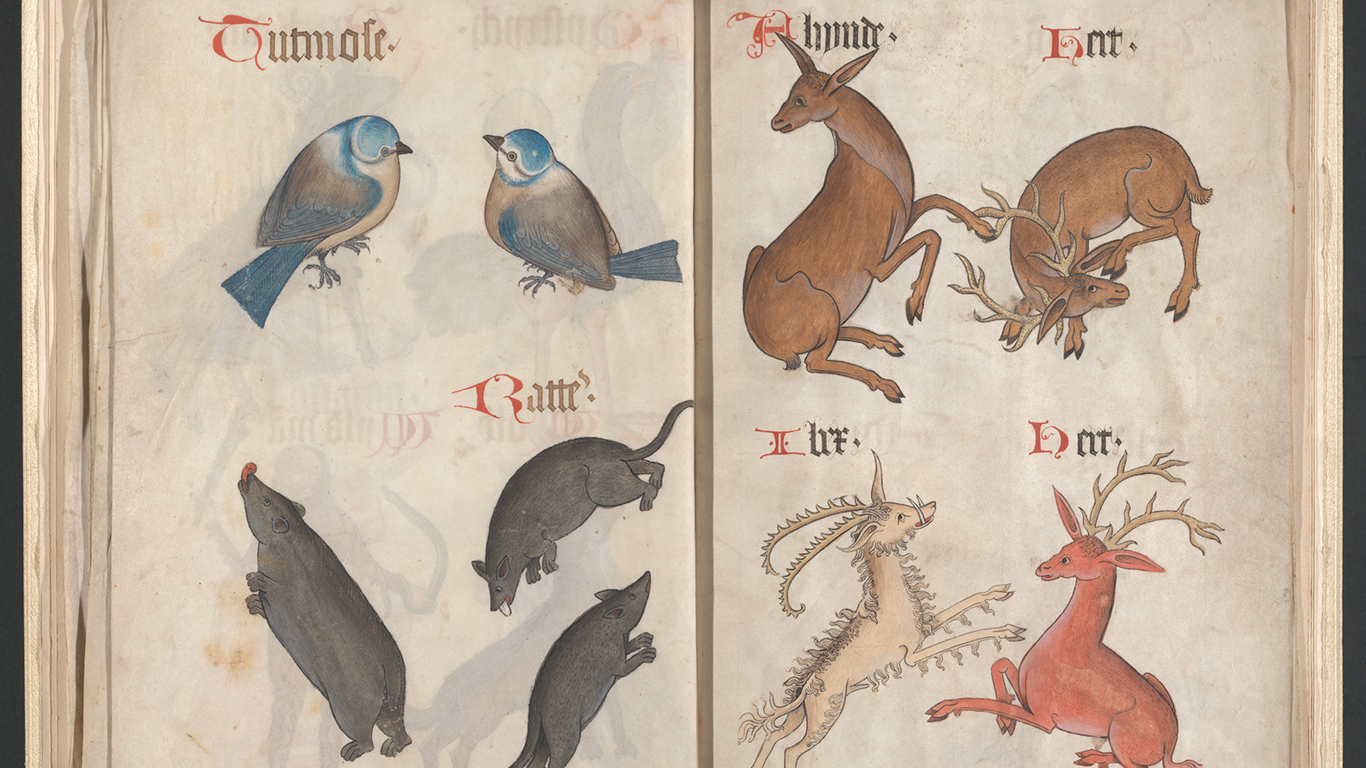 Titmose.
Ratte.
A hynde.
Hert.
Ibx.
Hert.